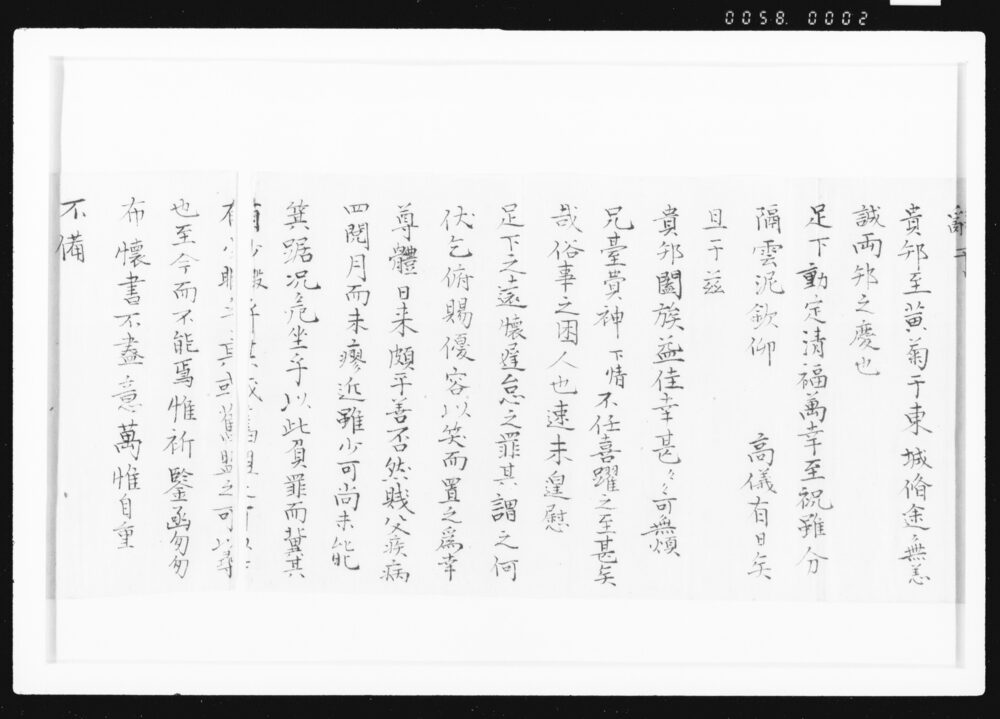 0058. 0002
辭于
貴邦至黃菊于東城脩途無恙
誠両邦之慶也
足下動定清福萬幸至祝雖分
隔雲泥欽仰 高儀有日矣
且于茲
貴邦闔族益佳幸甚〻可無煩
兄臺貴神下情不任喜躍之至甚矣
哉俗事之困人也速未遑慰
足下之遠懷遅怠之罪其謂之何
伏乞俯賜優容以笑而置之爲幸
尊體日来頗平善否然賤父疾病
四閱月而未瘳近雖少可尚未能
箕踞况危坐乎以此負罪而冀其
有少
之可以尋
也至今而不能焉惟祈鑒函匆匆
布懷書不盡意萬惟自重
不備